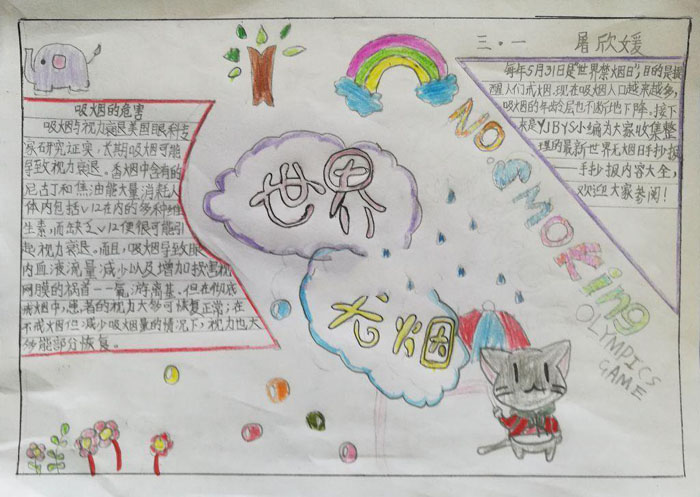 三.一 屠欣媛
吸烟的危害
吸烟与视力衰退美国眼科专
家研究证实,长期吸烟可能
导致视力衰退。香烟中含有的
尼古丁和焦油能大量消耗人
体内包括V12在内的多种维
生素,而缺乏V12便很可能引
起视力衰退。而且,吸烟导致眼
内血液流量减少以及增加损害视
网膜的祸首一氧游离基。但在彻底
戒烟中,患者的视力大多可恢复正常;在
不戒烟但减少吸烟量的情况下,视力也大
多能部分恢复。
世界
无烟
每年5月31日是“世界禁烟日”,目的是提
醒人们戒烟.现在吸烟人口越来越多,
吸烟的年龄层也不断地下降.接下
来是YJBYS小编为大家收集整
理的最新世界无烟日手抄报
——手抄报内容大全,
欢迎大家参阅!
NO.SMOKing
OLYMPICS
GAME